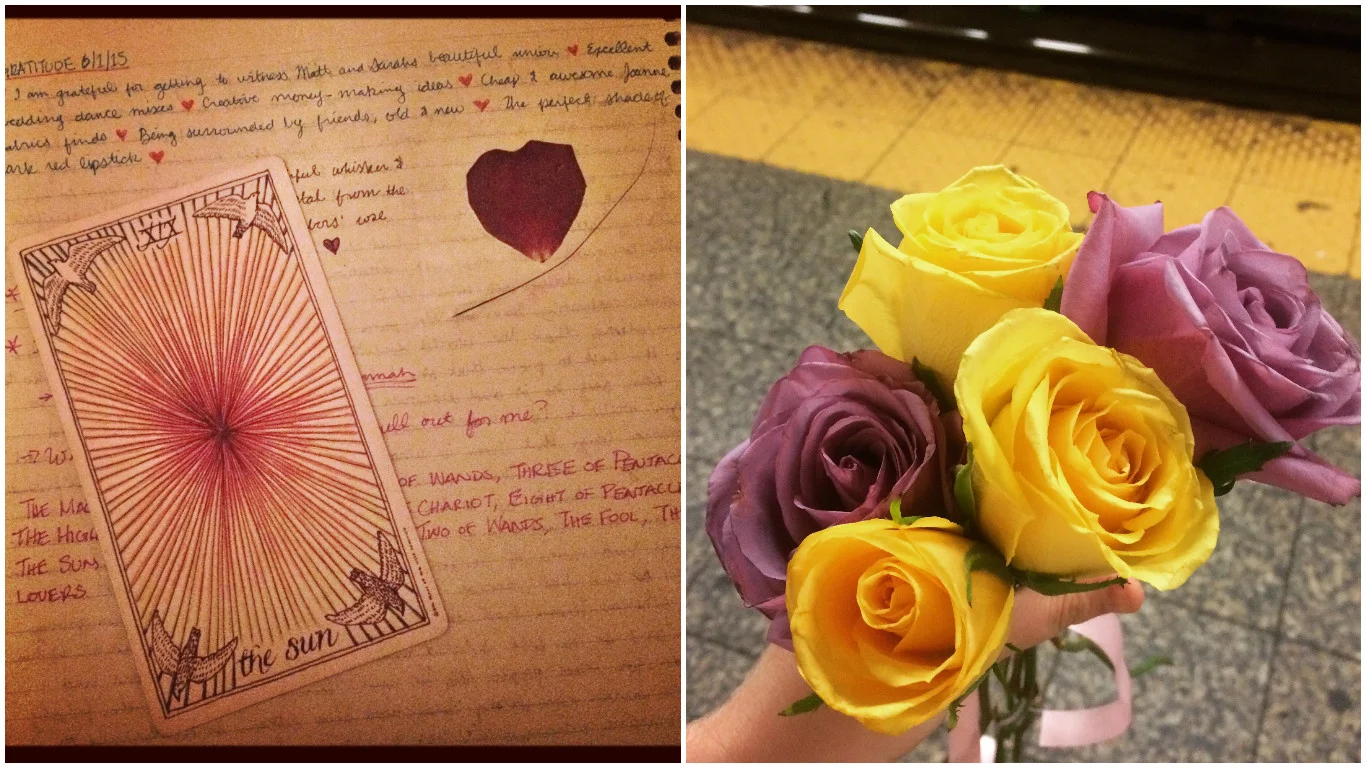 RATITUDE 6/1/15
I am grateful for getting to witness Matt and Sarahs beautiful union ♥ Excellent
wedding dance mixes ♥ Creative money-making ideas ♥ Cheap & awesome Joanne
abrics finds ♥ Being surrounded by friends, old & new ♥ The perfect shade of
ark red lipstick ♥
ful whisker &
tal from the
bors'
♥
XIX
nnah
ull out for me?
→ W
OF WANDS, THREE OF PENTAC
THE MA
CHARIOT, EIGHT OF PENTACL
THE HIGH
TWO OF WANDS, THE FOOL, TH
THE SUN
LOVERS
the sun